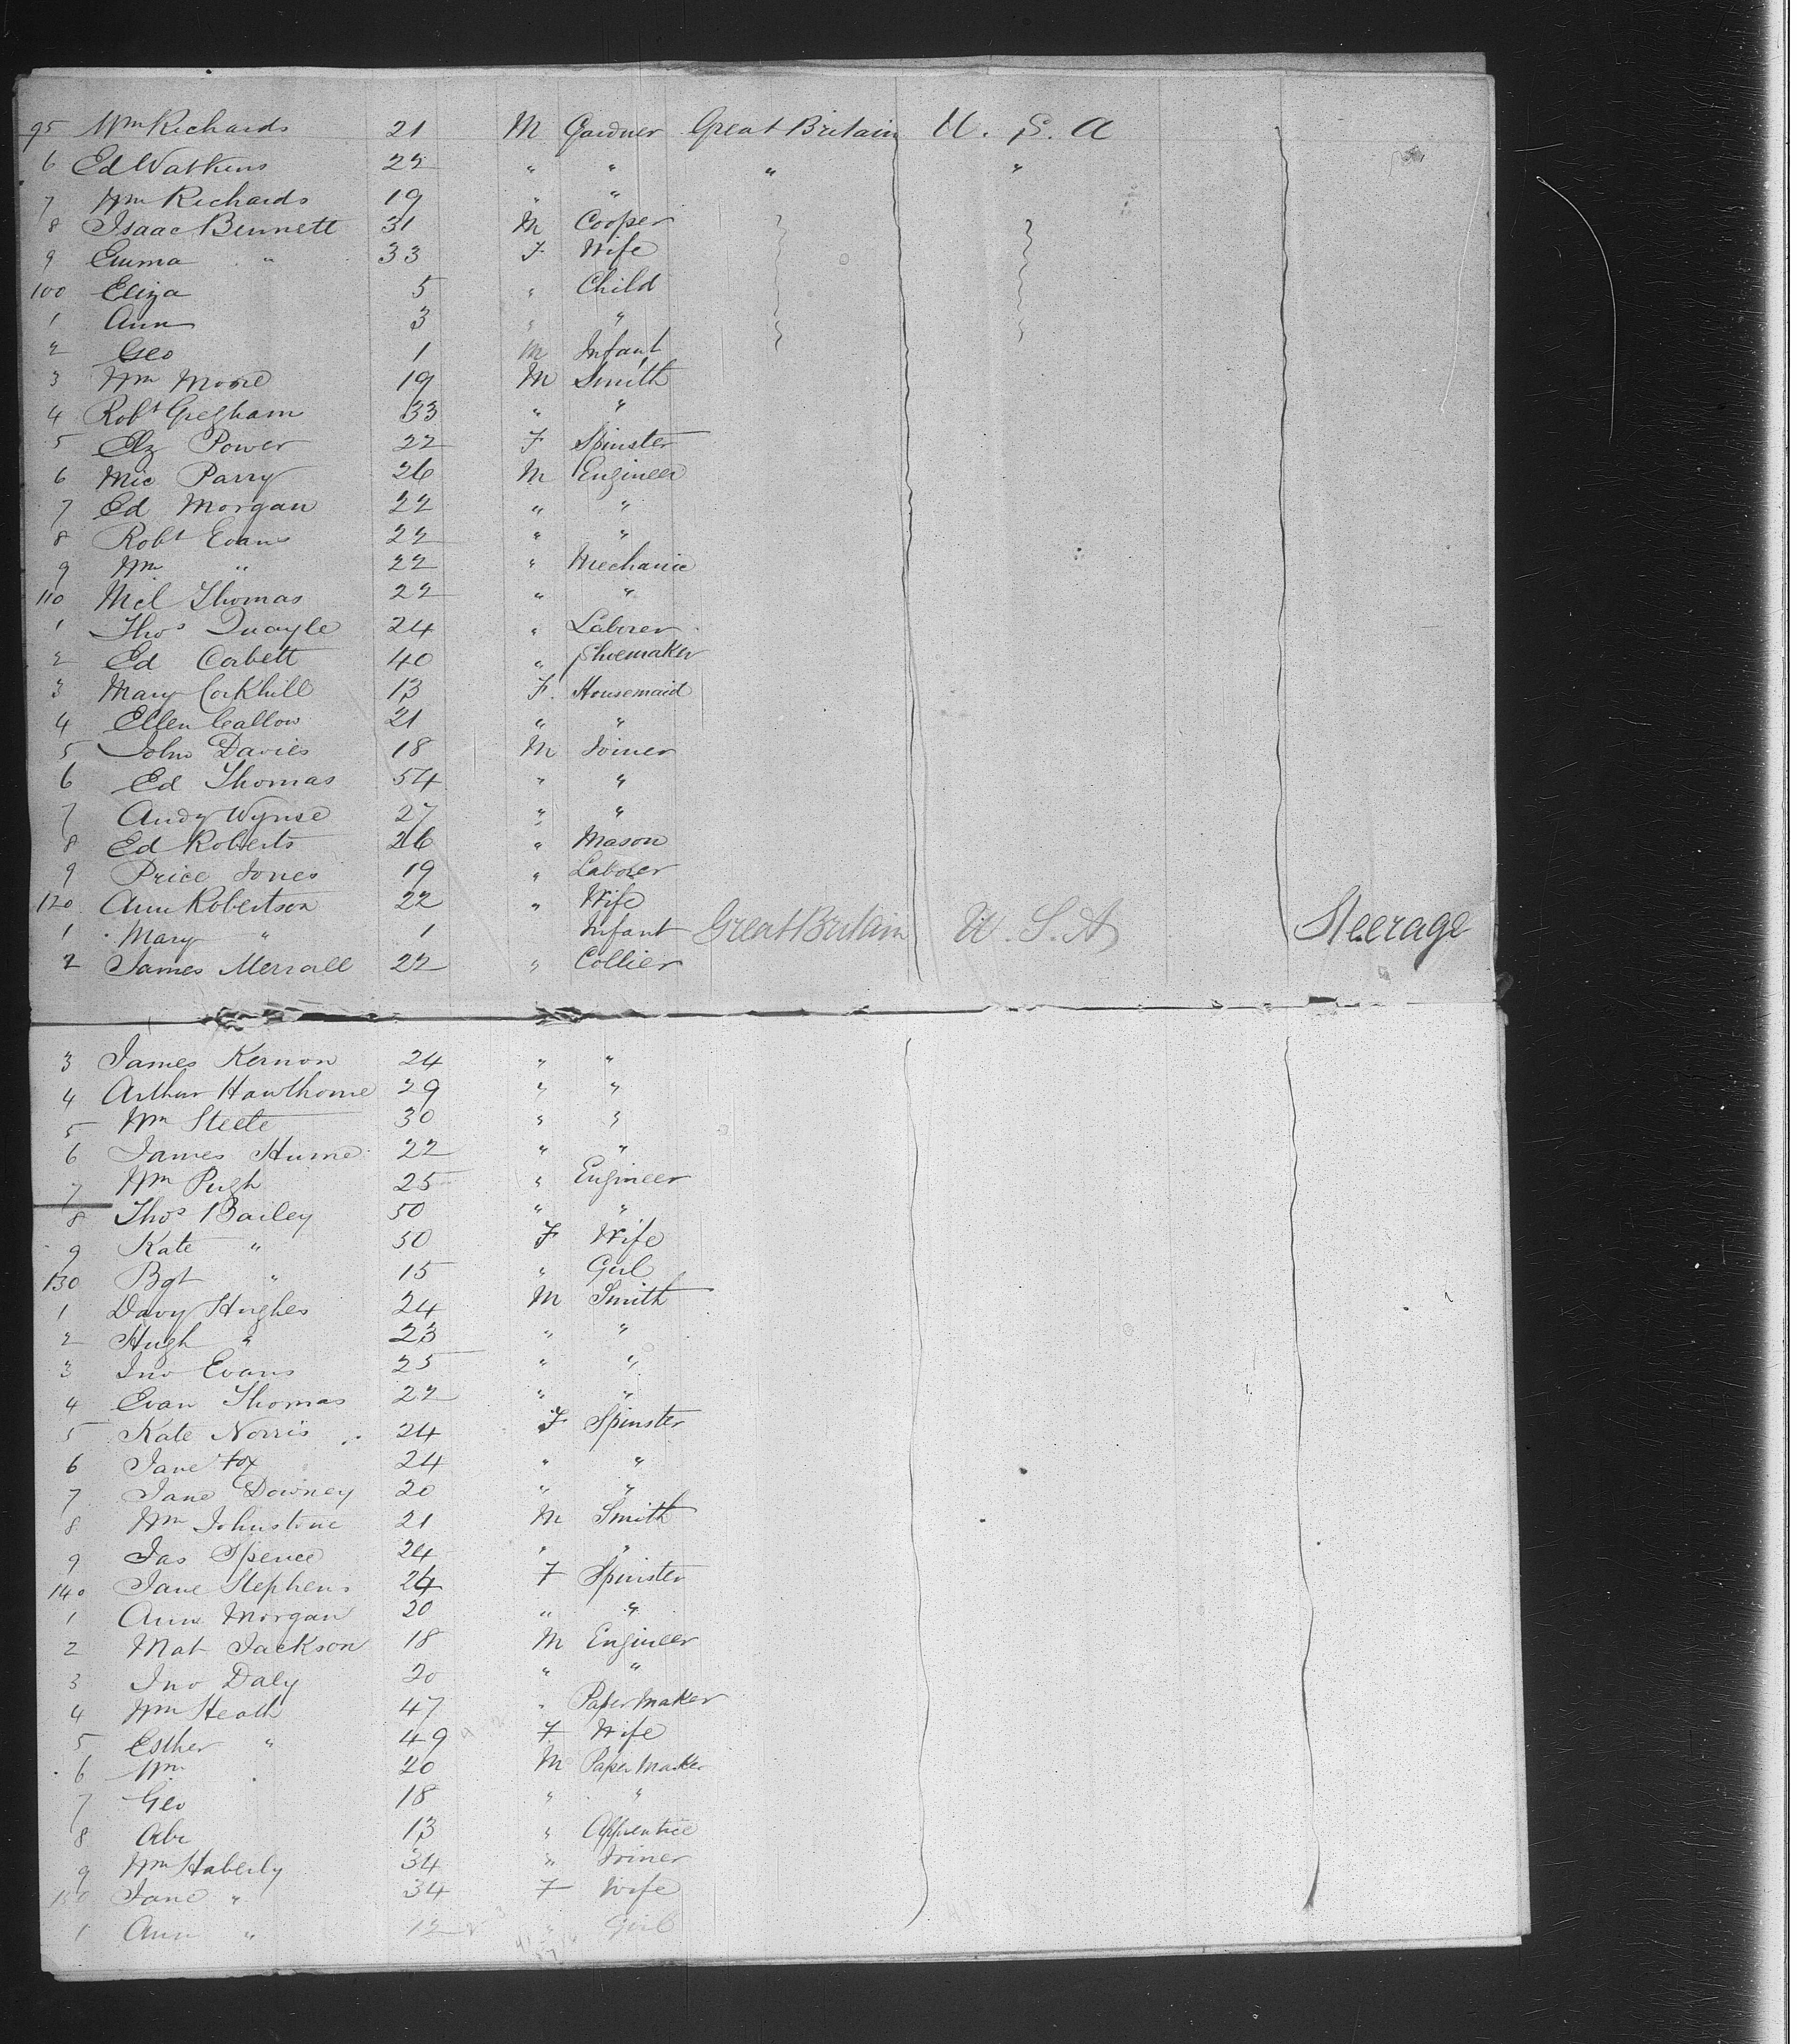 95 Wm Richards 21 M Gardner Great Britain U. S. A
6 Ed Watkins 22 " " " "
7 Wm Richards 19 " "
8 Isaac Bennett 31 M Cooper
9 Emma " 33 F Wife
100 Eliza 5 " Child
1 Ann 3 " "
2 Geo 1 M Infant
3 Wm Moore 19 M Smith
4 Robt Gregham 33 " "
5 Elz Power 22 F Spinster
6 Mic Parry 26 M Engineer
7 Ed Morgan 22 " "
8 Robt Evans 22 " "
9 Wm " 22 " Mechanic
110 Mel Thomas 22 " "
1 Thos Quayle 24 " Laborer
2 Ed Corbett 40 " Shoemaker
3 Mary Corkhill 13 F. Housemaid
4 Ellen Callow 21 " "
5 John Davies 18 M Joiner
6 Ed Thomas 54 " "
7 Andy Wynse 27 " "
8 Ed Roberts 26 " Mason
9 Price Jones 19 " Laborer
120 Ann Robertson 22 " Wife
1 Mary " 1 Infant Great Britain U. S. A Steerage
2 James Merrall 22 " Collier
3 James Kernon 24 " "
4 Arthur Hawthorne 29 " "
5 Wm Steele 30 " "
6 James Hume 22 " "
7 Wm Pugh 25 " Engineer
8 Thos Bailey 50 " "
9 Kate " 50 F Wife
130 Bgt " 15 " Girl
1 Davy Hughes 24 M Smith
2 Hugh " 23 " "
3 Jno Evans 25 " "
4 Evan Thomas 22 " "
5 Kate Norris 24 F Spinster
6 Jane Fox 24 " "
7 Jane Downey 20 " "
8 Wm Johnstone 21 M Smith
9 Jas Spence 24 " "
140 Jane Stephens 24 F Spinster
1 Anne Morgan 20 " "
2 Mat Jackson 18 M Engineer
3 Jno Daly 20 " "
4 Wm Heath 47 " Paper Maker
5 Esther " 49 F Wife
6 Wm 20 M Paper Maker
7 Geo 18 " "
8 Abe 13 " Apprentice
9 Wm Haberly 34 " Joiner
150 Jane " 34 F Wife
1 Ann " 12 " Girl